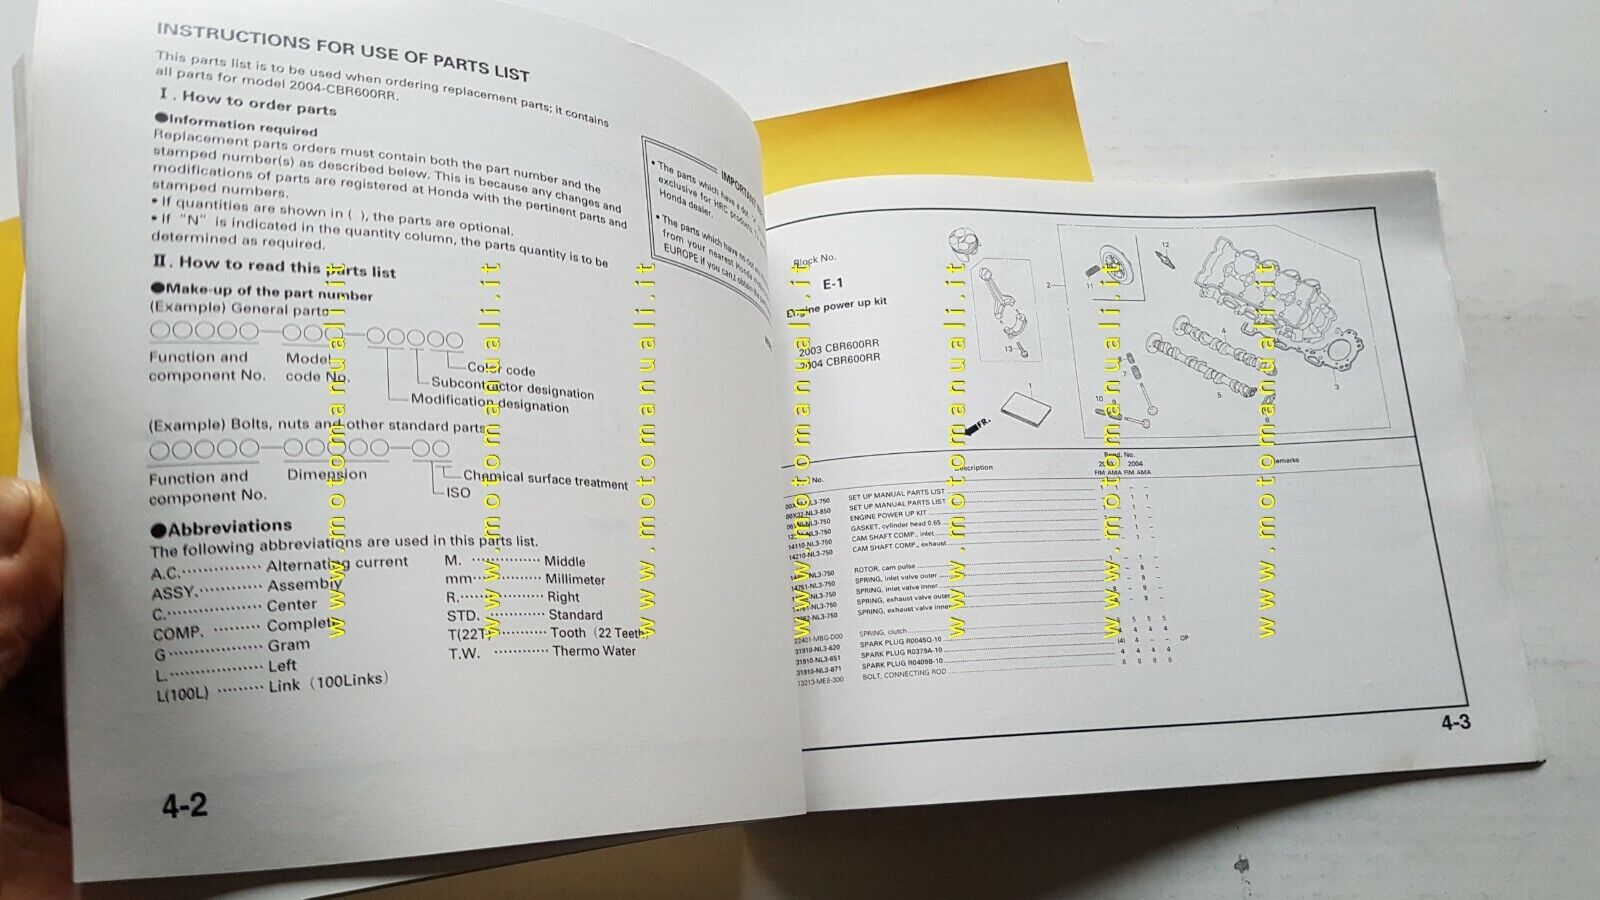 INSTRUCTIONS FOR USE OF PARTS LIST
This parts list is to be used when ordering replacement parts; it contains
all parts for model 2004-CBR600RR.
I. How to order parts
●Information required
Replacement parts orders must contain both the part number and the
stamped number(s) as described below. This is because any changes and
modifications of parts are registered at Honda with the pertinent parts and
stamped numbers.
• If quantities are shown in ( ), the parts are optional.
• If "N" is indicated in the quantity column, the parts quantity is to be
determined as required.
II. How to read this parts list
●Make-up of the part number
(Example) General parts
Function and Model
component No. code No.
Color code
Subcontractor designation
Modification designation
(Example) Bolts, nuts and other standard parts
Function and Dimension
component No.
Chemical surface treatment
ISO
●Abbreviations
The following abbreviations are used in this parts list.
A.C. Alternating current
ASSY. Assembly
C. Center
COMP. Complete
G Gram
L. Left
L(100L) Link (100Links)
M. Middle
mm Millimeter
R. Right
STD. Standard
T(22T) Tooth (22 Teeth)
T.W. Thermo Water
4-2
• The parts which have a dot
exclusive for HRC products.
Honda dealer.
• The parts which have no dot
from your nearest Honda
EUROPE if you can
Block No.
E-1
Engine power up kit
2003 CBR600RR
2004 CBR600RR
2
11
12
13
1
FR.
4
5
3
6
7
8
9
10
No. Description Reqd. No. Remarks
2003 2004
FIM AMA FIM AMA
SET UP MANUAL PARTS LIST
00X32-NL3-850 SET UP MANUAL PARTS LIST
ENGINE POWER UP KIT
GASKET, cylinder head 0.65
14110-NL3-750 CAM SHAFT COMP., inlet
14210-NL3-750 CAM SHAFT COMP., exhaust
ROTOR, cam pulse
14751-NL3-750 SPRING, inlet valve outer
SPRING, inlet valve inner
SPRING, exhaust valve outer
SPRING, exhaust valve inner
22401-MBG-D00 SPRING, clutch 5 5 5 5
31910-NL3-620 SPARK PLUG R0045Q-10 4 4 4 4
31910-NL3-651 SPARK PLUG R0379A-10 (4) 4 – – OP
31910-NL3-871 SPARK PLUG R0409B-10 4 4 4 4
13213-MEE-300 BOLT, CONNECTING ROD 8 8 8 8
4-3
www.motomanuali.it
www.motomanuali.it
www.motomanuali.it
www.motomanuali.it
www.motomanuali.it
www.motomanuali.it
www.motomanuali.it